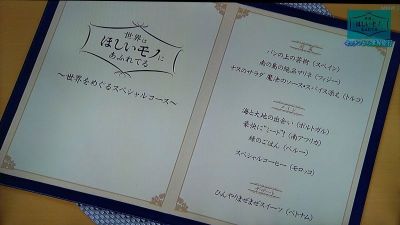 世界は
ほしいモノに
あふれてる
〜世界をめぐるスペシャルコース〜
前菜
パンの上の芸術（スペイン）
南の島の絶品マリネ（フィジー）
ナスのサラダ 魔法のソース・スパイス添え（トルコ）
メイン
海と大地の出会い（ポルトガル）
豪快に"ミート"!（南アフリカ）
緑のごはん（ペルー）
スペシャルコーヒー（モロッコ）
ひんやりまぜまぜスイーツ（ベトナム）